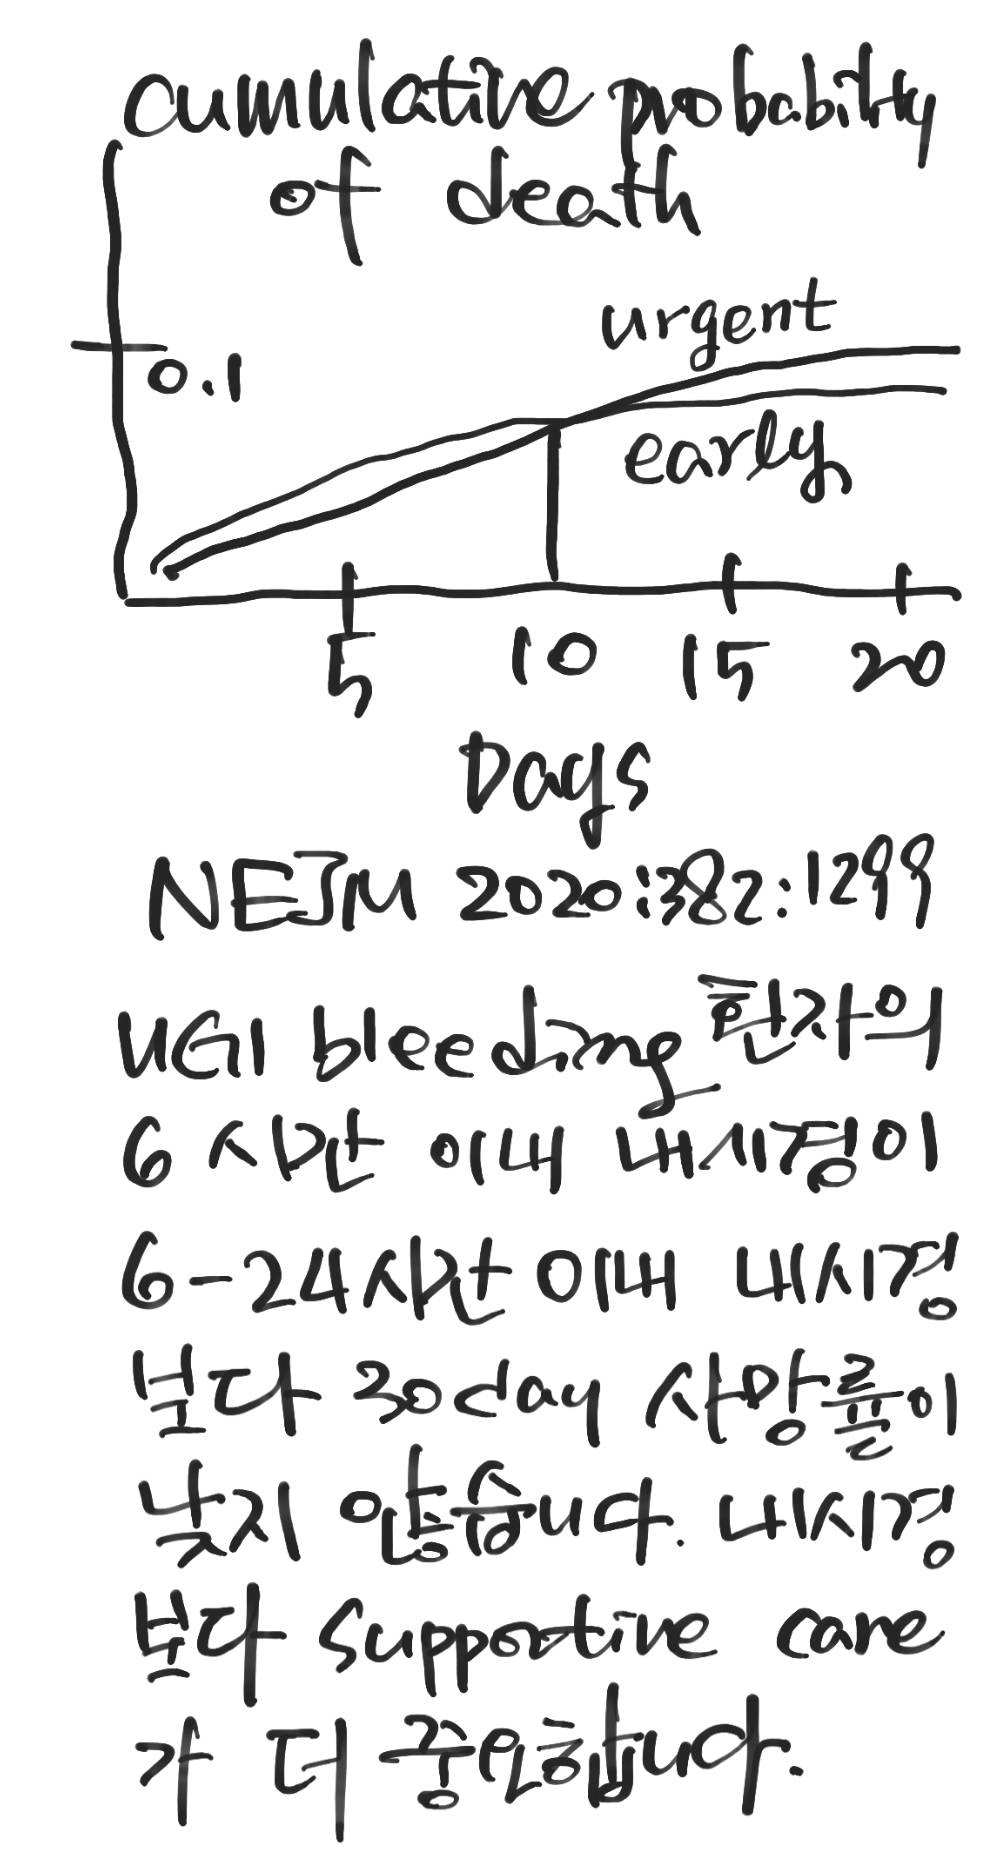 cumulative probability
of death
0.1
urgent
early
5 10 15 20
Days
NEJM 2020:382:1299
UGI bleeding 환자의
6 시간 이내 내시경이
6-24시간 이내 내시경
보다 30day 사망률이
낮지 않습니다. 내시경
보다 supportive care
가 더 중요합니다.